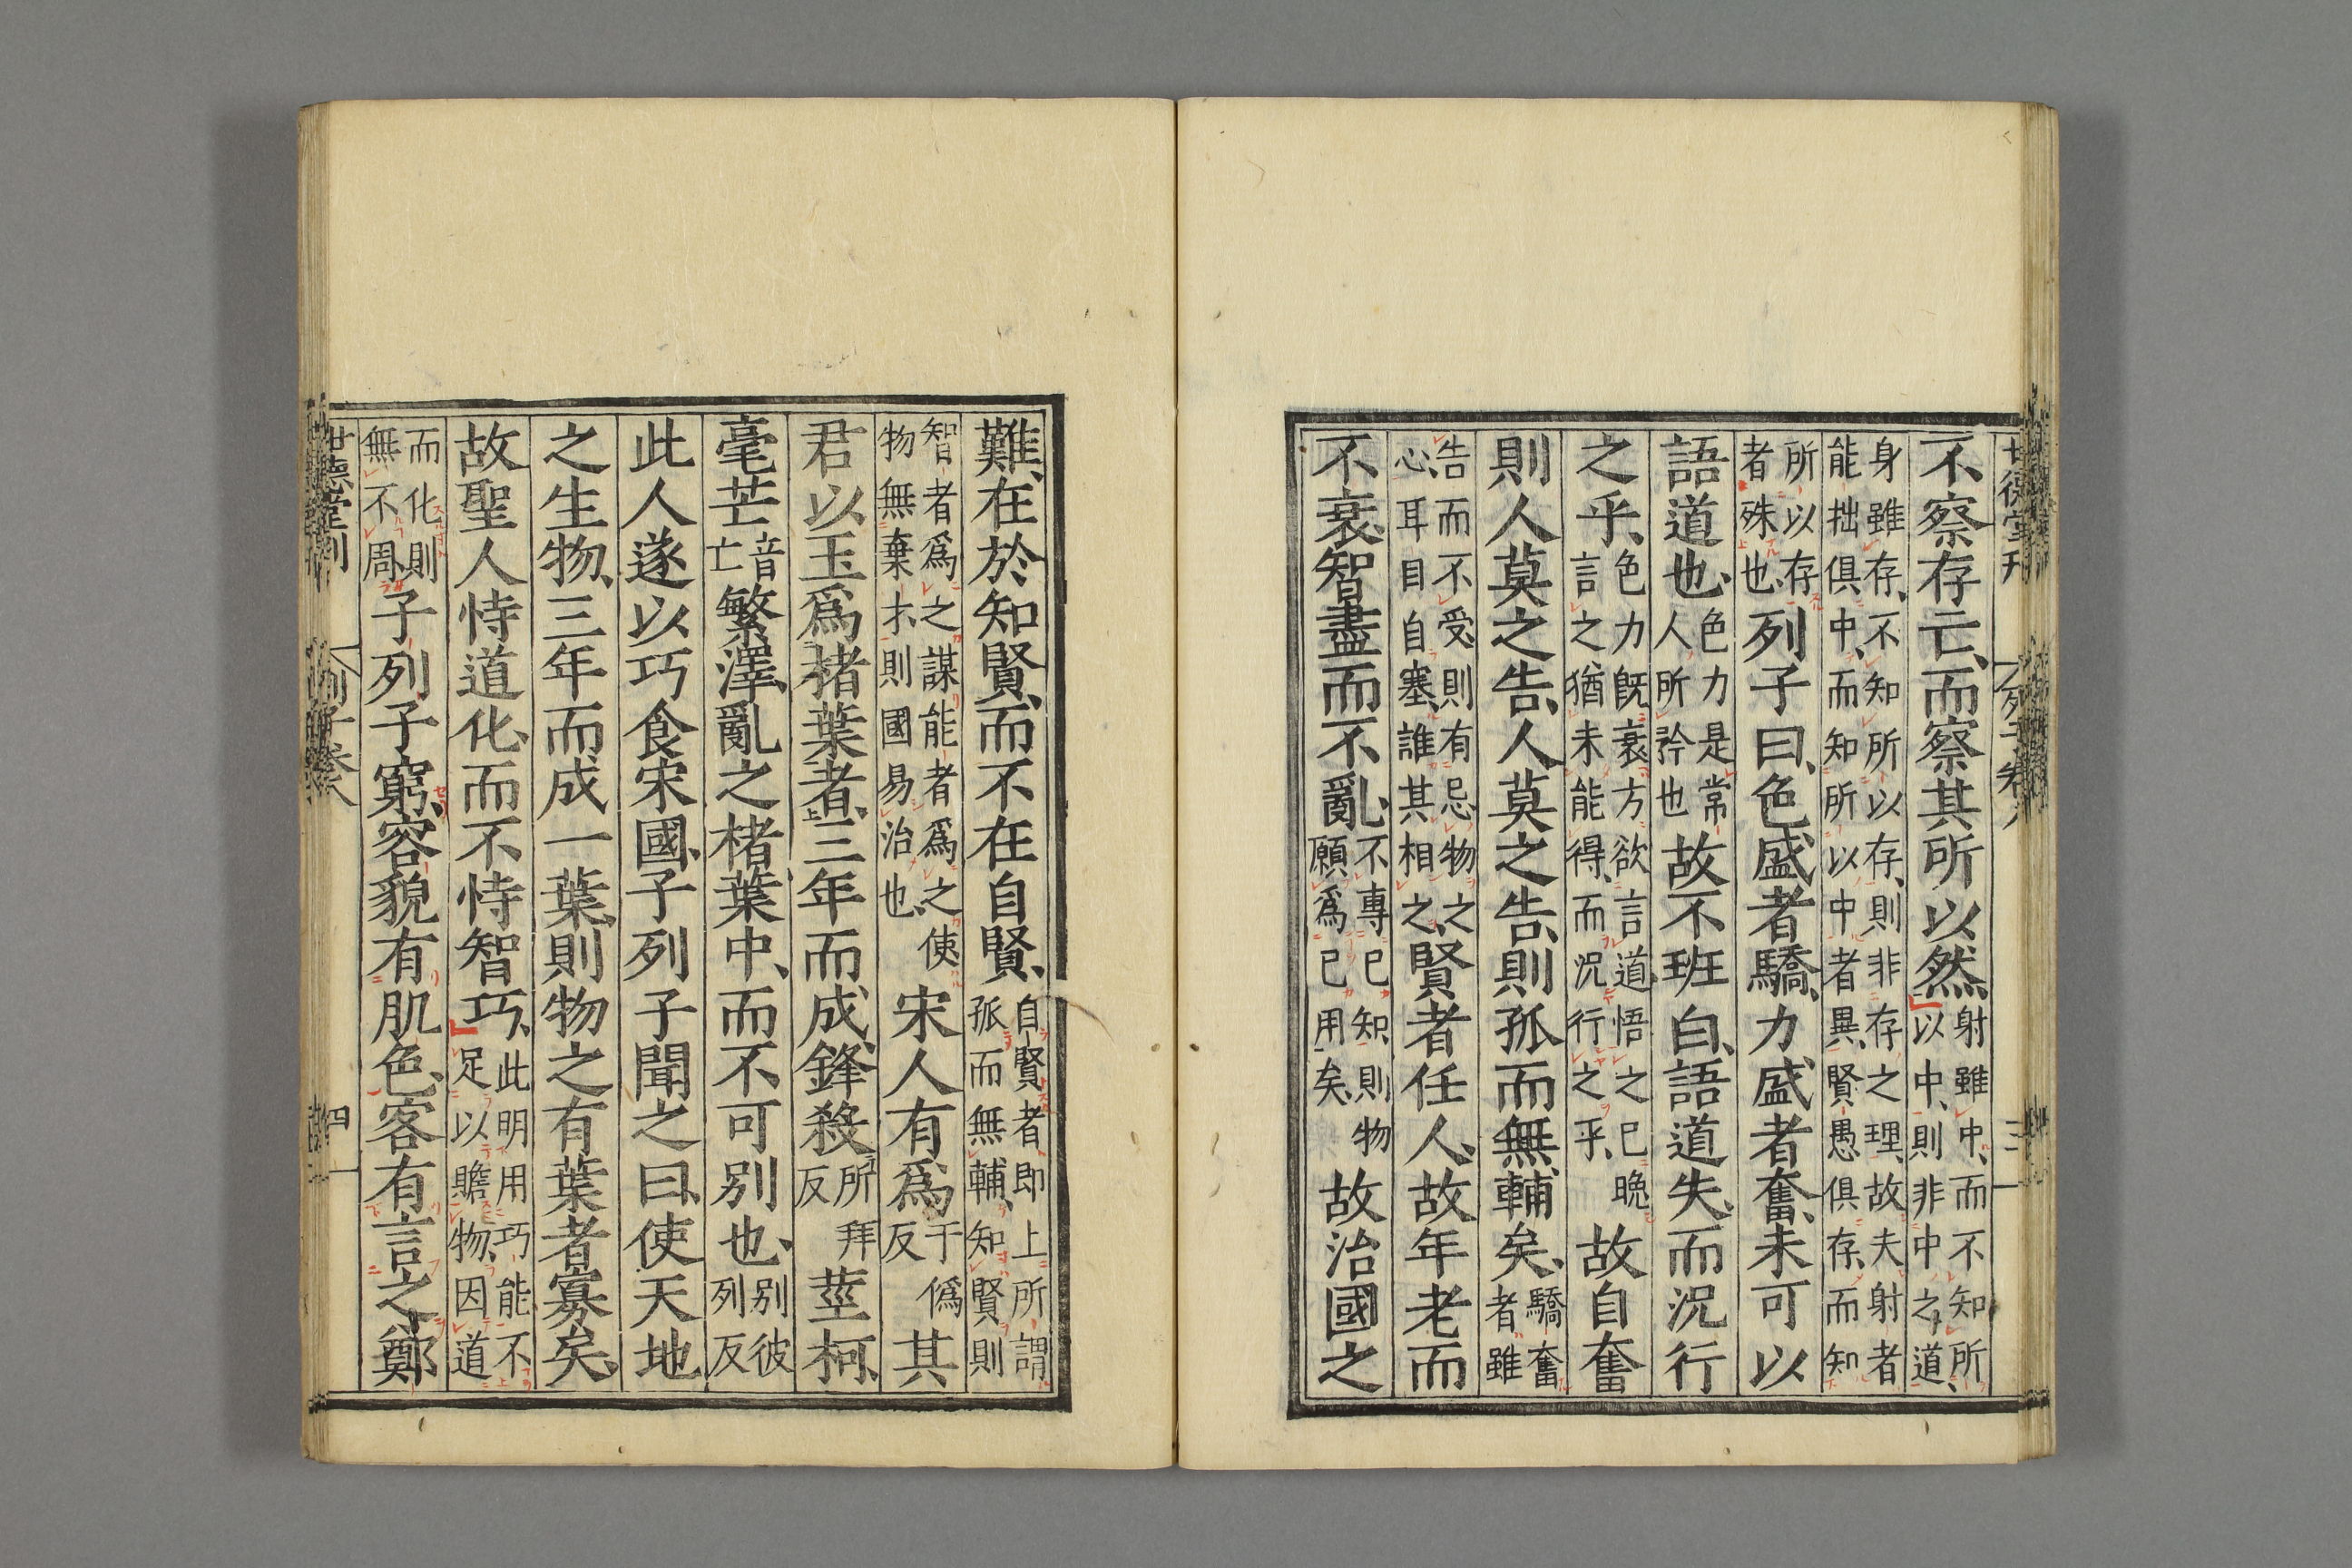 世德堂刊 列子卷八 三
不察存亡而察其所以然射雖中而不知所以中則非中之道
身雖存不知所以存則非存之理故夫射者能拙俱中而知所以中者異賢愚俱存而知
所以存者殊也列子曰色盛者驕力盛者奮未可以
語道也色力是常人所矜也故不班白語道失而況行
之乎色力既衰方欲言道悟之已晚言之猶未能得而況行之乎故自奮
則人莫之告人莫之告則孤而無輔矣驕奮者雖
告而不受則有忌物之心耳目自塞誰其相之賢者任人故年老而
不衰智盡而不亂不專己知則物願爲己用矣故治國之
難在於知賢而不在自賢自賢者即上所謂孤而無輔知賢則
智者爲之謀能者爲之使物無棄才則國易治也宋人有爲于僞反其
君以玉爲楮葉者三年而成鋒殺所拜反莖柯
毫芒音亡繁澤亂之楮葉中而不可別也別彼列反
此人遂以巧食宋國子列子聞之曰使天地
之生物三年而成一葉則物之有葉者寡矣
故聖人恃道化而不恃智巧此明用巧能不足以贍物因道
而化則無不周子列子窮容貌有肌色客有言之鄭
世德堂刊 列子卷八 四